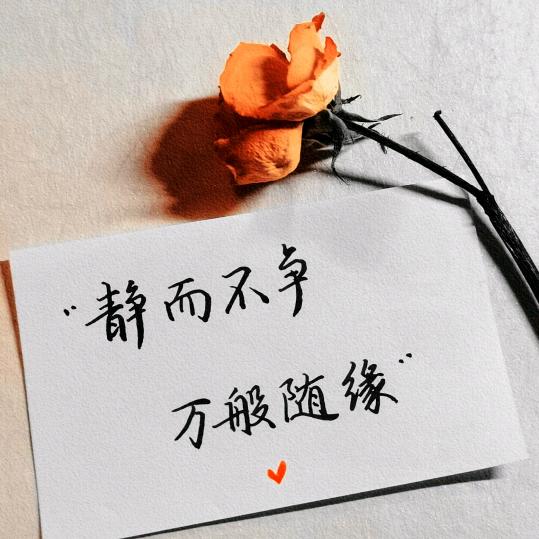 “静而不争
万般随缘”